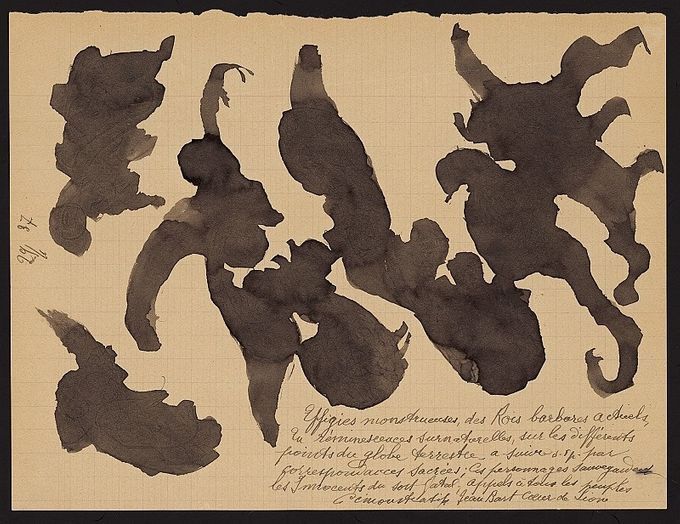 Effigies monstrueuses, des Rois barbares actuels,
En réminescences surnaturelles, sur les différents
points du globe terrestre a suivre s.v.p. par
correspondances sacrées; Ces personnages sauvegardent
les Innocents du sort fatal, appels à tous les peuples
Démonstratif Jean Bart Cœur de Lion